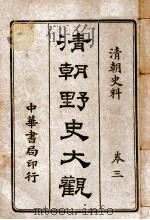 清朝史料　卷三
清朝野史大觀
中華書局印行